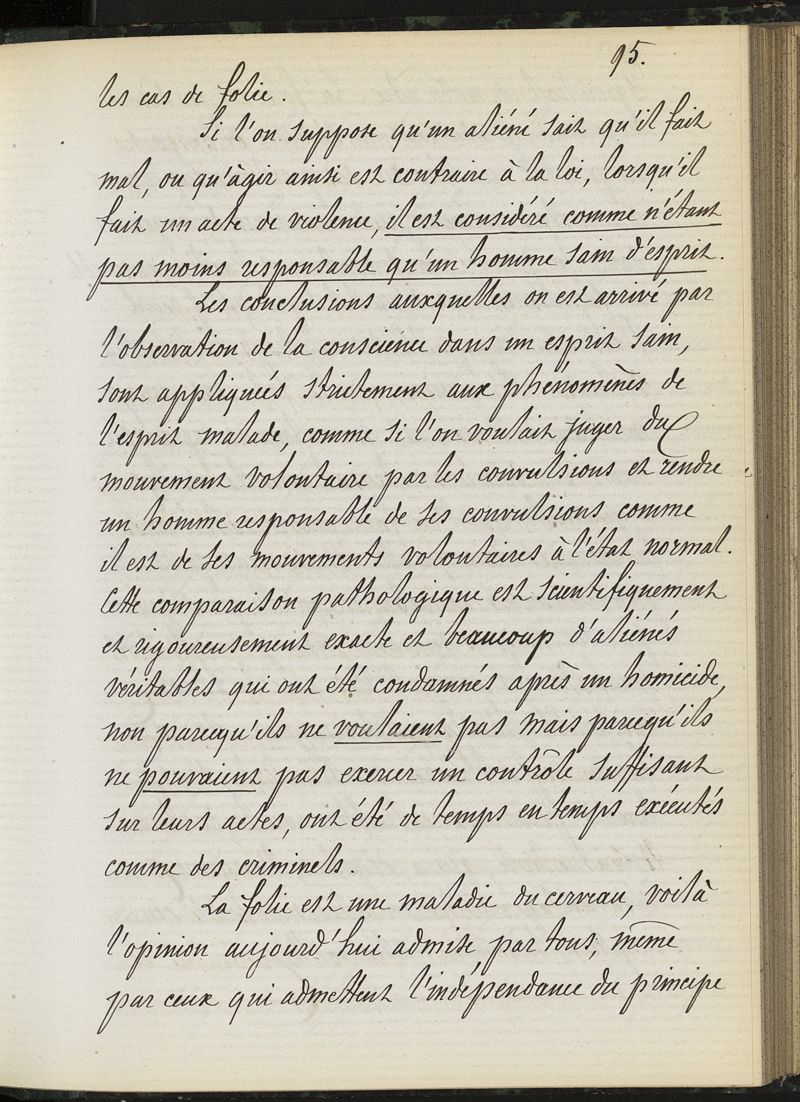 95.
les cas de folie.
Si l'on suppose qu'un aliéné sait qu'il fait
mal, ou qu'àgir ainsi est contraire à la loi, lorsqu'il
fait un acte de violence, il est considéré comme n'étant
pas moins responsable qu'un homme sain d'esprit.
Les conclusions auxquelles on est arrivé par
l'observation de la conscience dans un esprit sain,
sont appliquées strictement aux phénomènes de
l'esprit malade, comme si l'on voulait juger du
mouvement volontaire par les convulsions et rendre
un homme responsable de ses convulsions comme
il est de ses mouvements volontaires à l'état normal.
Cette comparaison pathologique est scientifiquement
et rigoureusement exacte et beaucoup d'aliénés
véritables qui ont été condamnés après un homicide,
non parcequ'ils ne voulaient pas mais parcequ'ils
ne pouvaient pas exercer un contrôle suffisant
sur leurs actes, ont été de temps en temps exécutés
comme des criminels.
La folie est une maladie du cerveau, voilà
l'opinion aujourd'hui admise par tous, même
par ceux qui admettent l'indépendance du principe